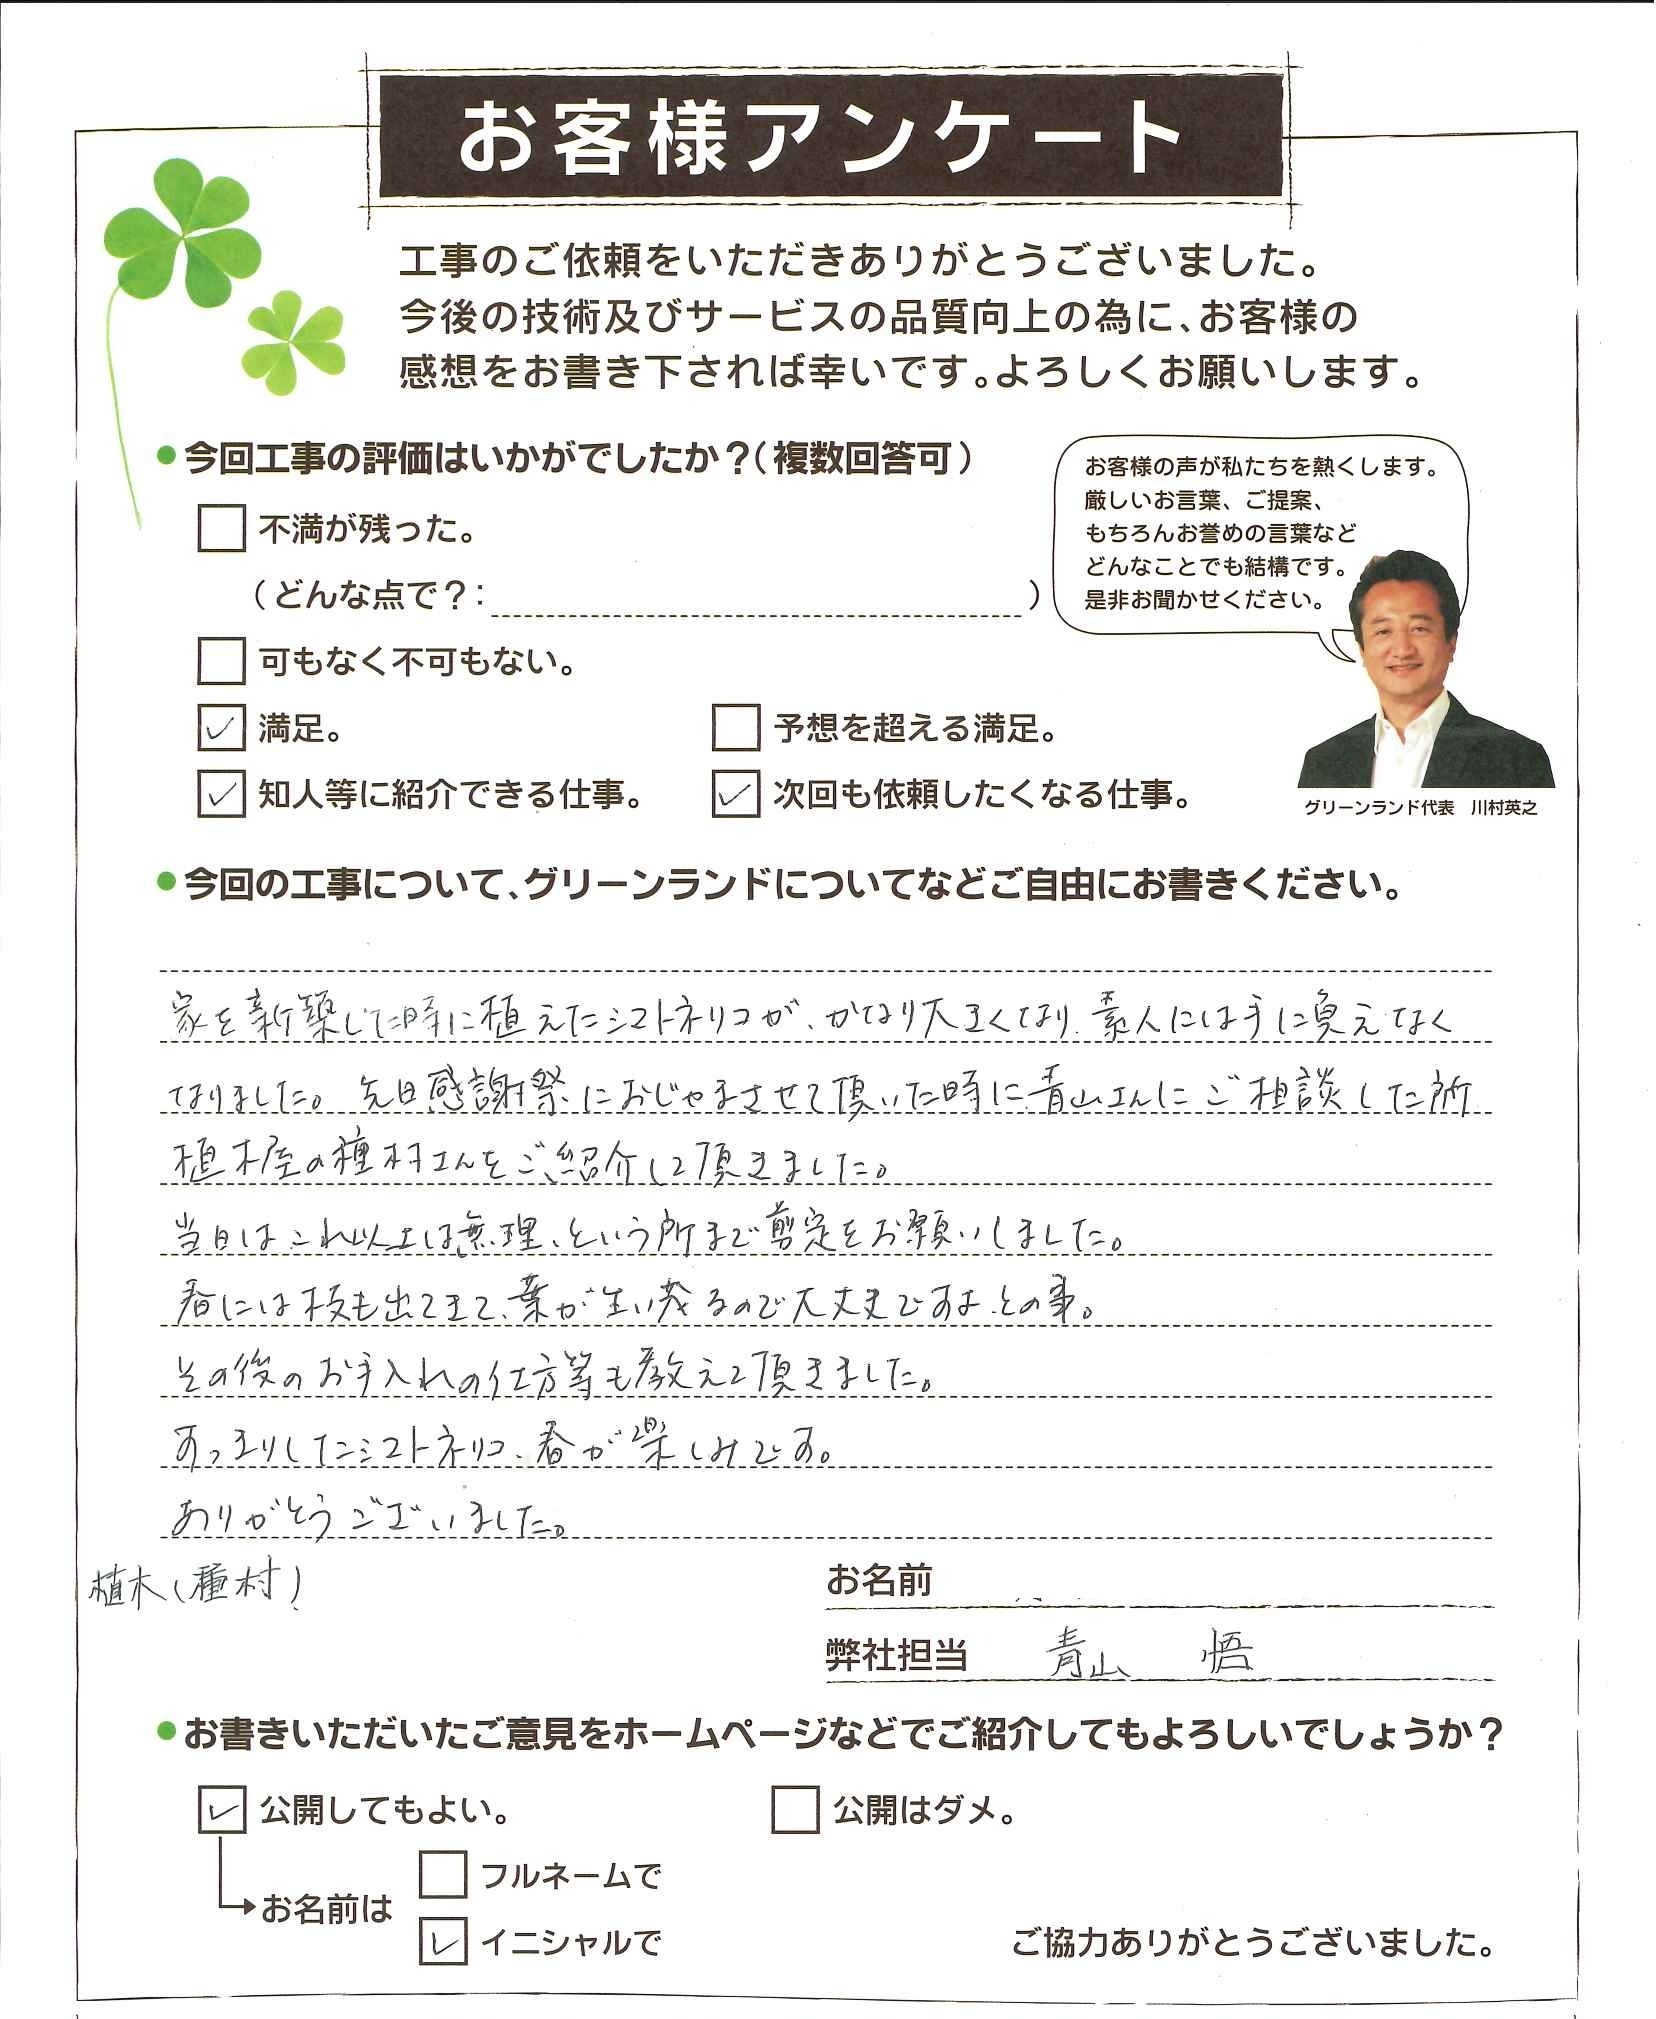 お客様アンケート
工事のご依頼をいただきありがとうございました。
今後の技術及びサービスの品質向上の為に、お客様の
感想をお書き下されば幸いです。よろしくお願いします。
●今回工事の評価はいかがでしたか？（複数回答可）
不満が残った。
（どんな点で？：　）
可もなく不可もない。
満足。
予想を超える満足。
知人等に紹介できる仕事。
次回も依頼したくなる仕事。
お客様の声が私たちを熱くします。
厳しいお言葉、ご提案、
もちろんお誉めの言葉など
どんなことでも結構です。
是非お聞かせください。
グリーンランド代表　川村英之
●今回の工事について、グリーンランドについてなどご自由にお書きください。
家を新築した時に植えたシマトネリコが、かなり大きくなり、素人には手に負えなく
なりました。先日感謝祭におじゃまさせて頂いた時に青山さんにご相談した所
植木屋の種村さんをご紹介して頂きました。
当日はこれ以上は無理、という所まで剪定をお願いしました。
春には枝も出てきて、葉が生い茂るので大丈夫ですよ、との事。
その後のお手入れの仕方等も教えて頂きました。
すっきりしたシマトネリコ、春が楽しみです。
ありがとうございました。
植木（種村）
お名前
弊社担当　青山　悟
●お書きいただいたご意見をホームページなどでご紹介してもよろしいでしょうか？
公開してもよい。
公開はダメ。
お名前は
フルネームで
イニシャルで
ご協力ありがとうございました。